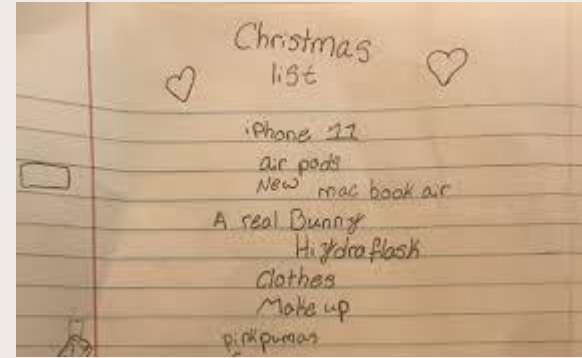 Christmas
list
iPhone 11
air pods
New mac book air
A real Bunny
Hydroflask
Clothes
Make up
pink pumas